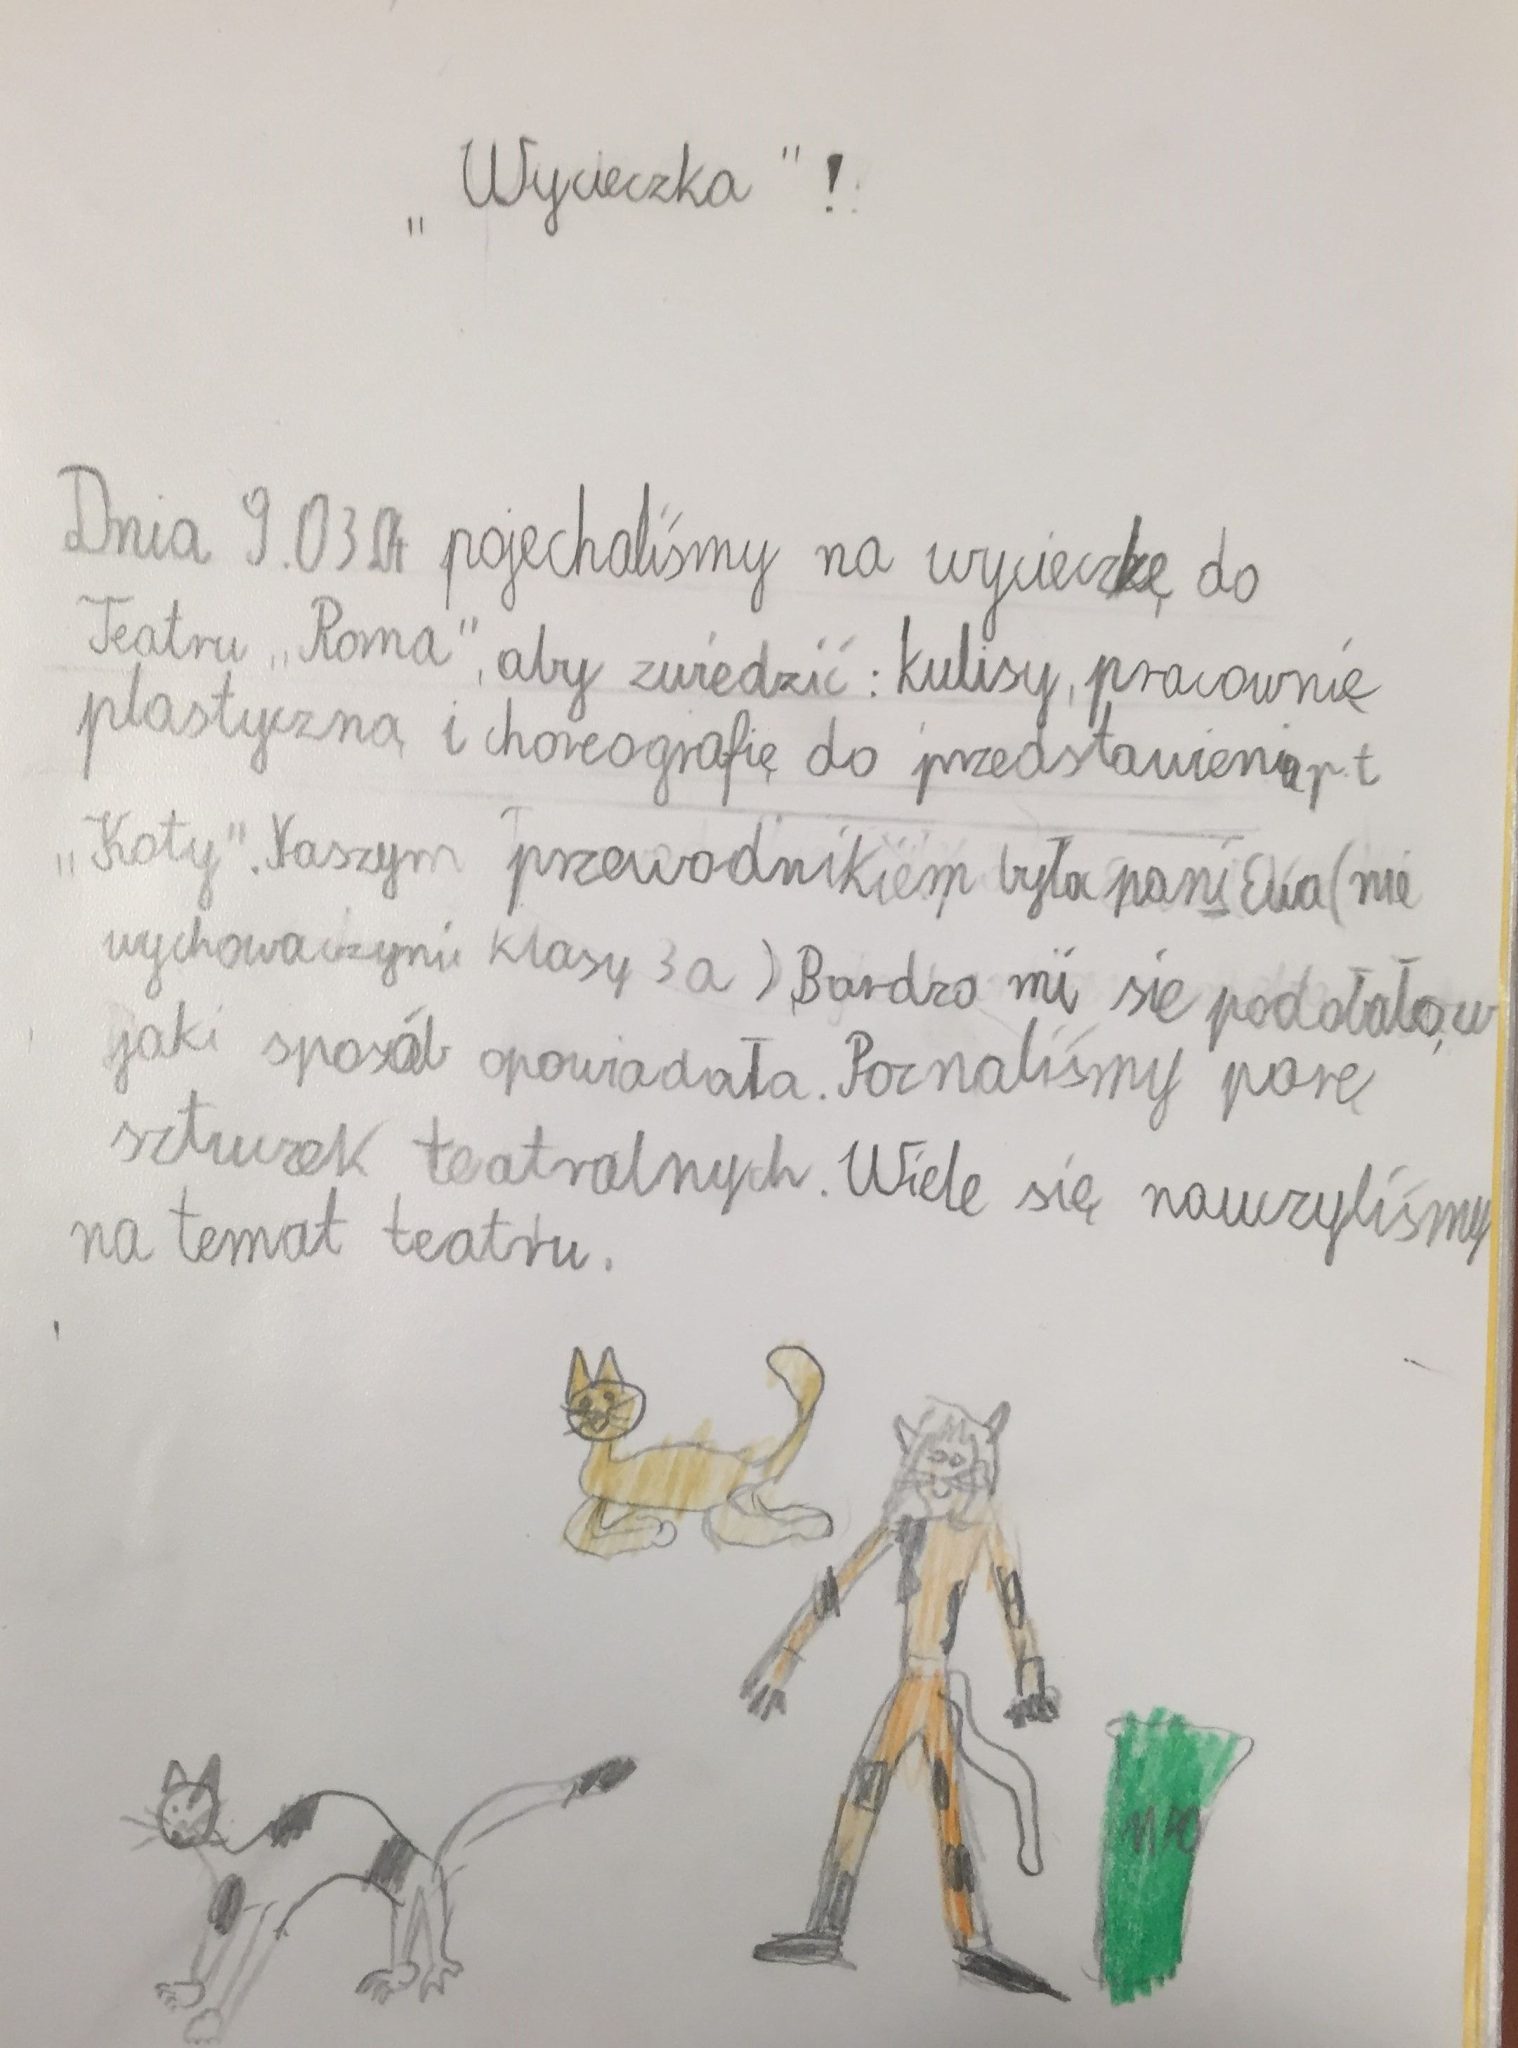 „Wycieczka"!
Dnia 9.03 pojechaliśmy na wycieczkę do
Teatru „Roma", aby zwiedzić: kulisy, pracownię
plastyczną i choreografię do przedstawienia p.t
„Koty". Naszym przewodnikiem była pani Ewa (nie
wychowaczyni klasy 3a) Bardzo mi się poddało, w
jaki sposób opowiadała. Poznaliśmy parę
sztuczek teatralnych. Wiele się nauczyliśmy
na temat teatru.